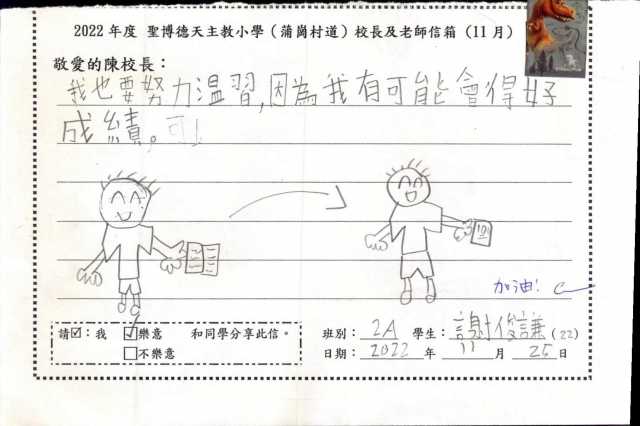 2022 年度 聖博德天主教小學（蒲崗村道）校長及老師信箱（11 月）
敬愛的陳校長：
我也要努力温習,因為我有可能會得好
成績。可
加油!
請☑：我 ☑樂意 和同學分享此信。
☐不樂意
班別：2A 學生：謝俊謙(22)
日期：2022 年 11 月 25 日